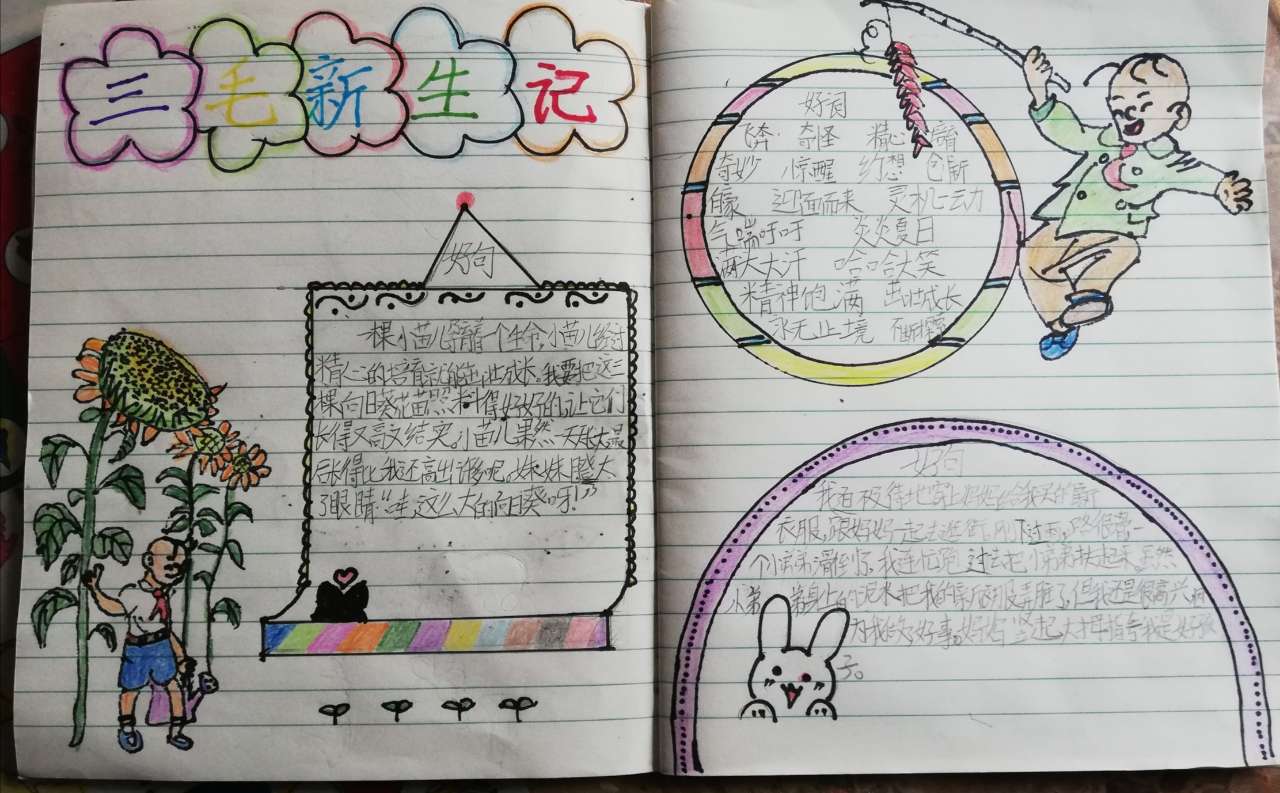 三毛新生记
好句
一棵小苗儿孕育着一个生命,小苗儿经过
精心的培育就能茁壮成长。我要把这三
棵向日葵花苗照料得好好的,让它们
长得又高又结实。小苗儿果然一天天长大,最
后长得比我还高出许多呢。妹妹瞪大
了眼睛:“哇,这么大的向日葵呀!”
好词
飞奔 奇怪 精心 培育
奇妙 惊醒 幻想 创新
自豪 迎面而来 灵机一动
气喘吁吁 炎炎夏日
满头大汗 哈哈大笑
精神饱满 茁壮成长
永无止境
好句
我迫不及待地穿上奶奶给我买的新
衣服,跟奶奶一起去逛街,刚下过雨,路很滑,一
个小弟弟滑倒了,我连忙跑过去把小弟弟扶起来,虽然
小弟弟身上的泥水把我的新衣服弄脏了,但我还是很高兴,
因为我做了好事。奶奶竖起大拇指夸我是好孩
子。